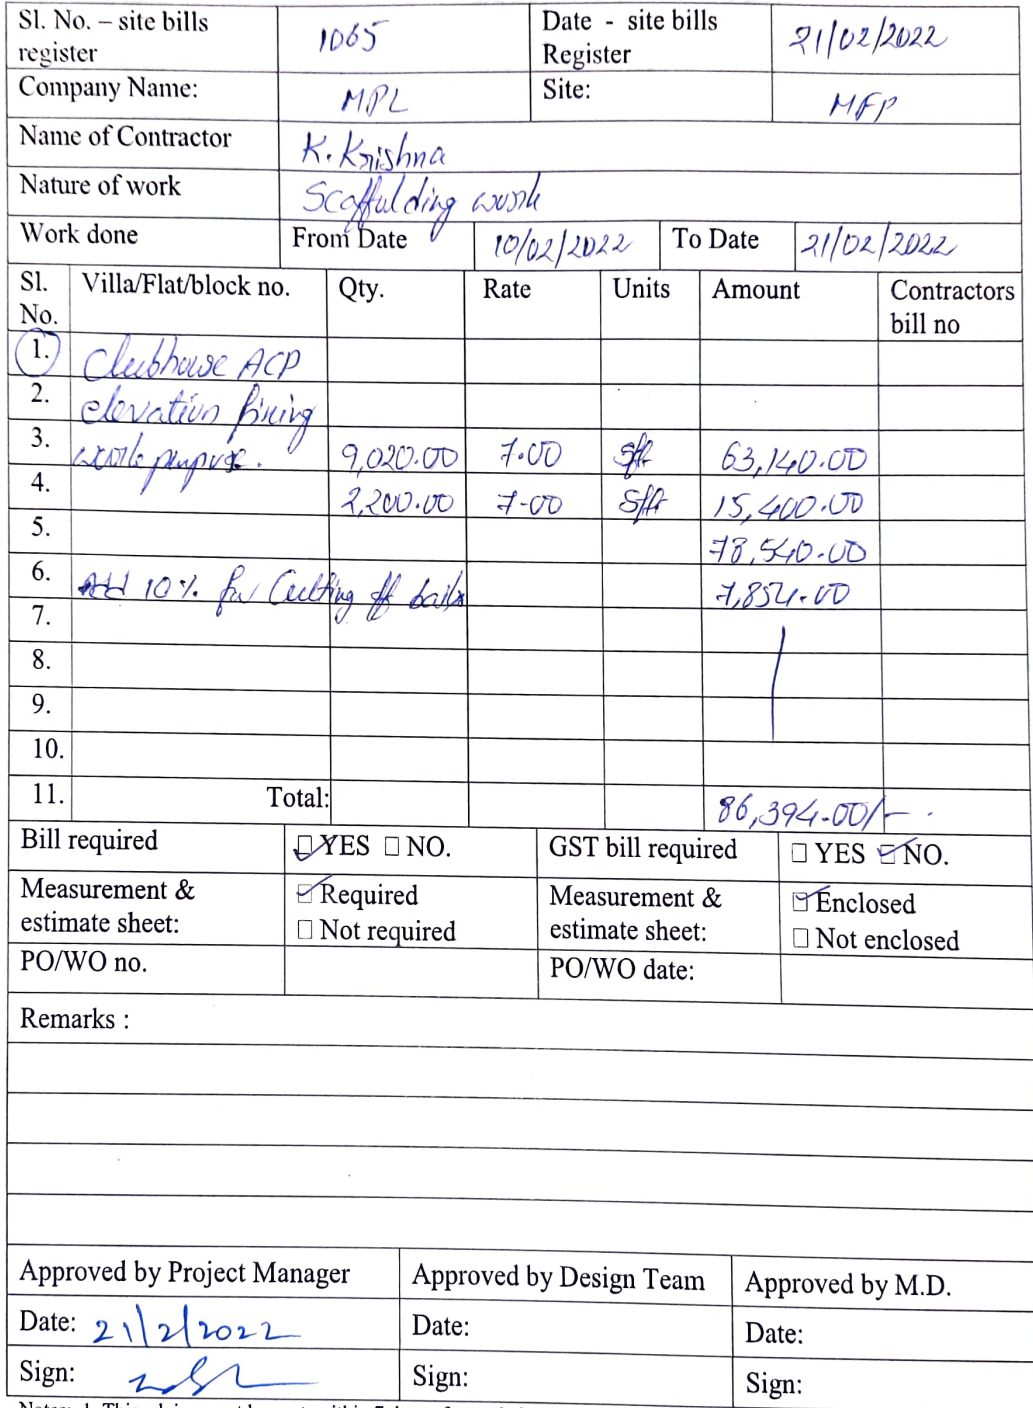 Sl. No. – site bills register 1065 Date - site bills Register 21/02/2022
Company Name: MPL Site: MFP
Name of Contractor K. Krishna
Nature of work Scaffulding work
Work done From Date 10/02/2022 To Date 21/02/2022
Sl. No. Villa/Flat/block no. Qty. Rate Units Amount Contractors bill no
1. Clubhouse ACP
2. elevation fixing
3. work purpose. 9,020.00 7.00 sft 63,140.00
4. 2,200.00 7-00 sft 15,400.00
5. 78,540.00
6. Add 10% for Cutting off 7,854.00
7.
8.
9.
10.
11. Total: 86,394.00/-
Bill required ☑ YES ☐ NO. GST bill required ☐ YES ☑ NO.
Measurement & estimate sheet: ☑ Required ☐ Not required Measurement & estimate sheet: ☑ Enclosed ☐ Not enclosed
PO/WO no. PO/WO date:
Remarks :
Approved by Project Manager Approved by Design Team Approved by M.D.
Date: 21/2/2022 Date: Date:
Sign: Sign: Sign: